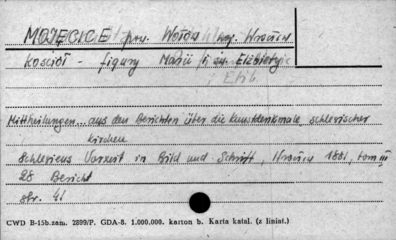 MOJĘCICE pow. Wołów woj. Wrocław
Kościół - figury Marii i św. Elżbiety
Elżb
Mittheilungen... aus den Berichten über die Kunstdenkmale schlesischer
Kirchen
Schlesiens Vorzeit in Bild und Schrift, Wrocław 1881, tom III
28 Bericht
str. 41
CWD B-15b.zam. 2899/P. GDA-8. 1.000.000. karton b. Karta katal. (z liniat.)